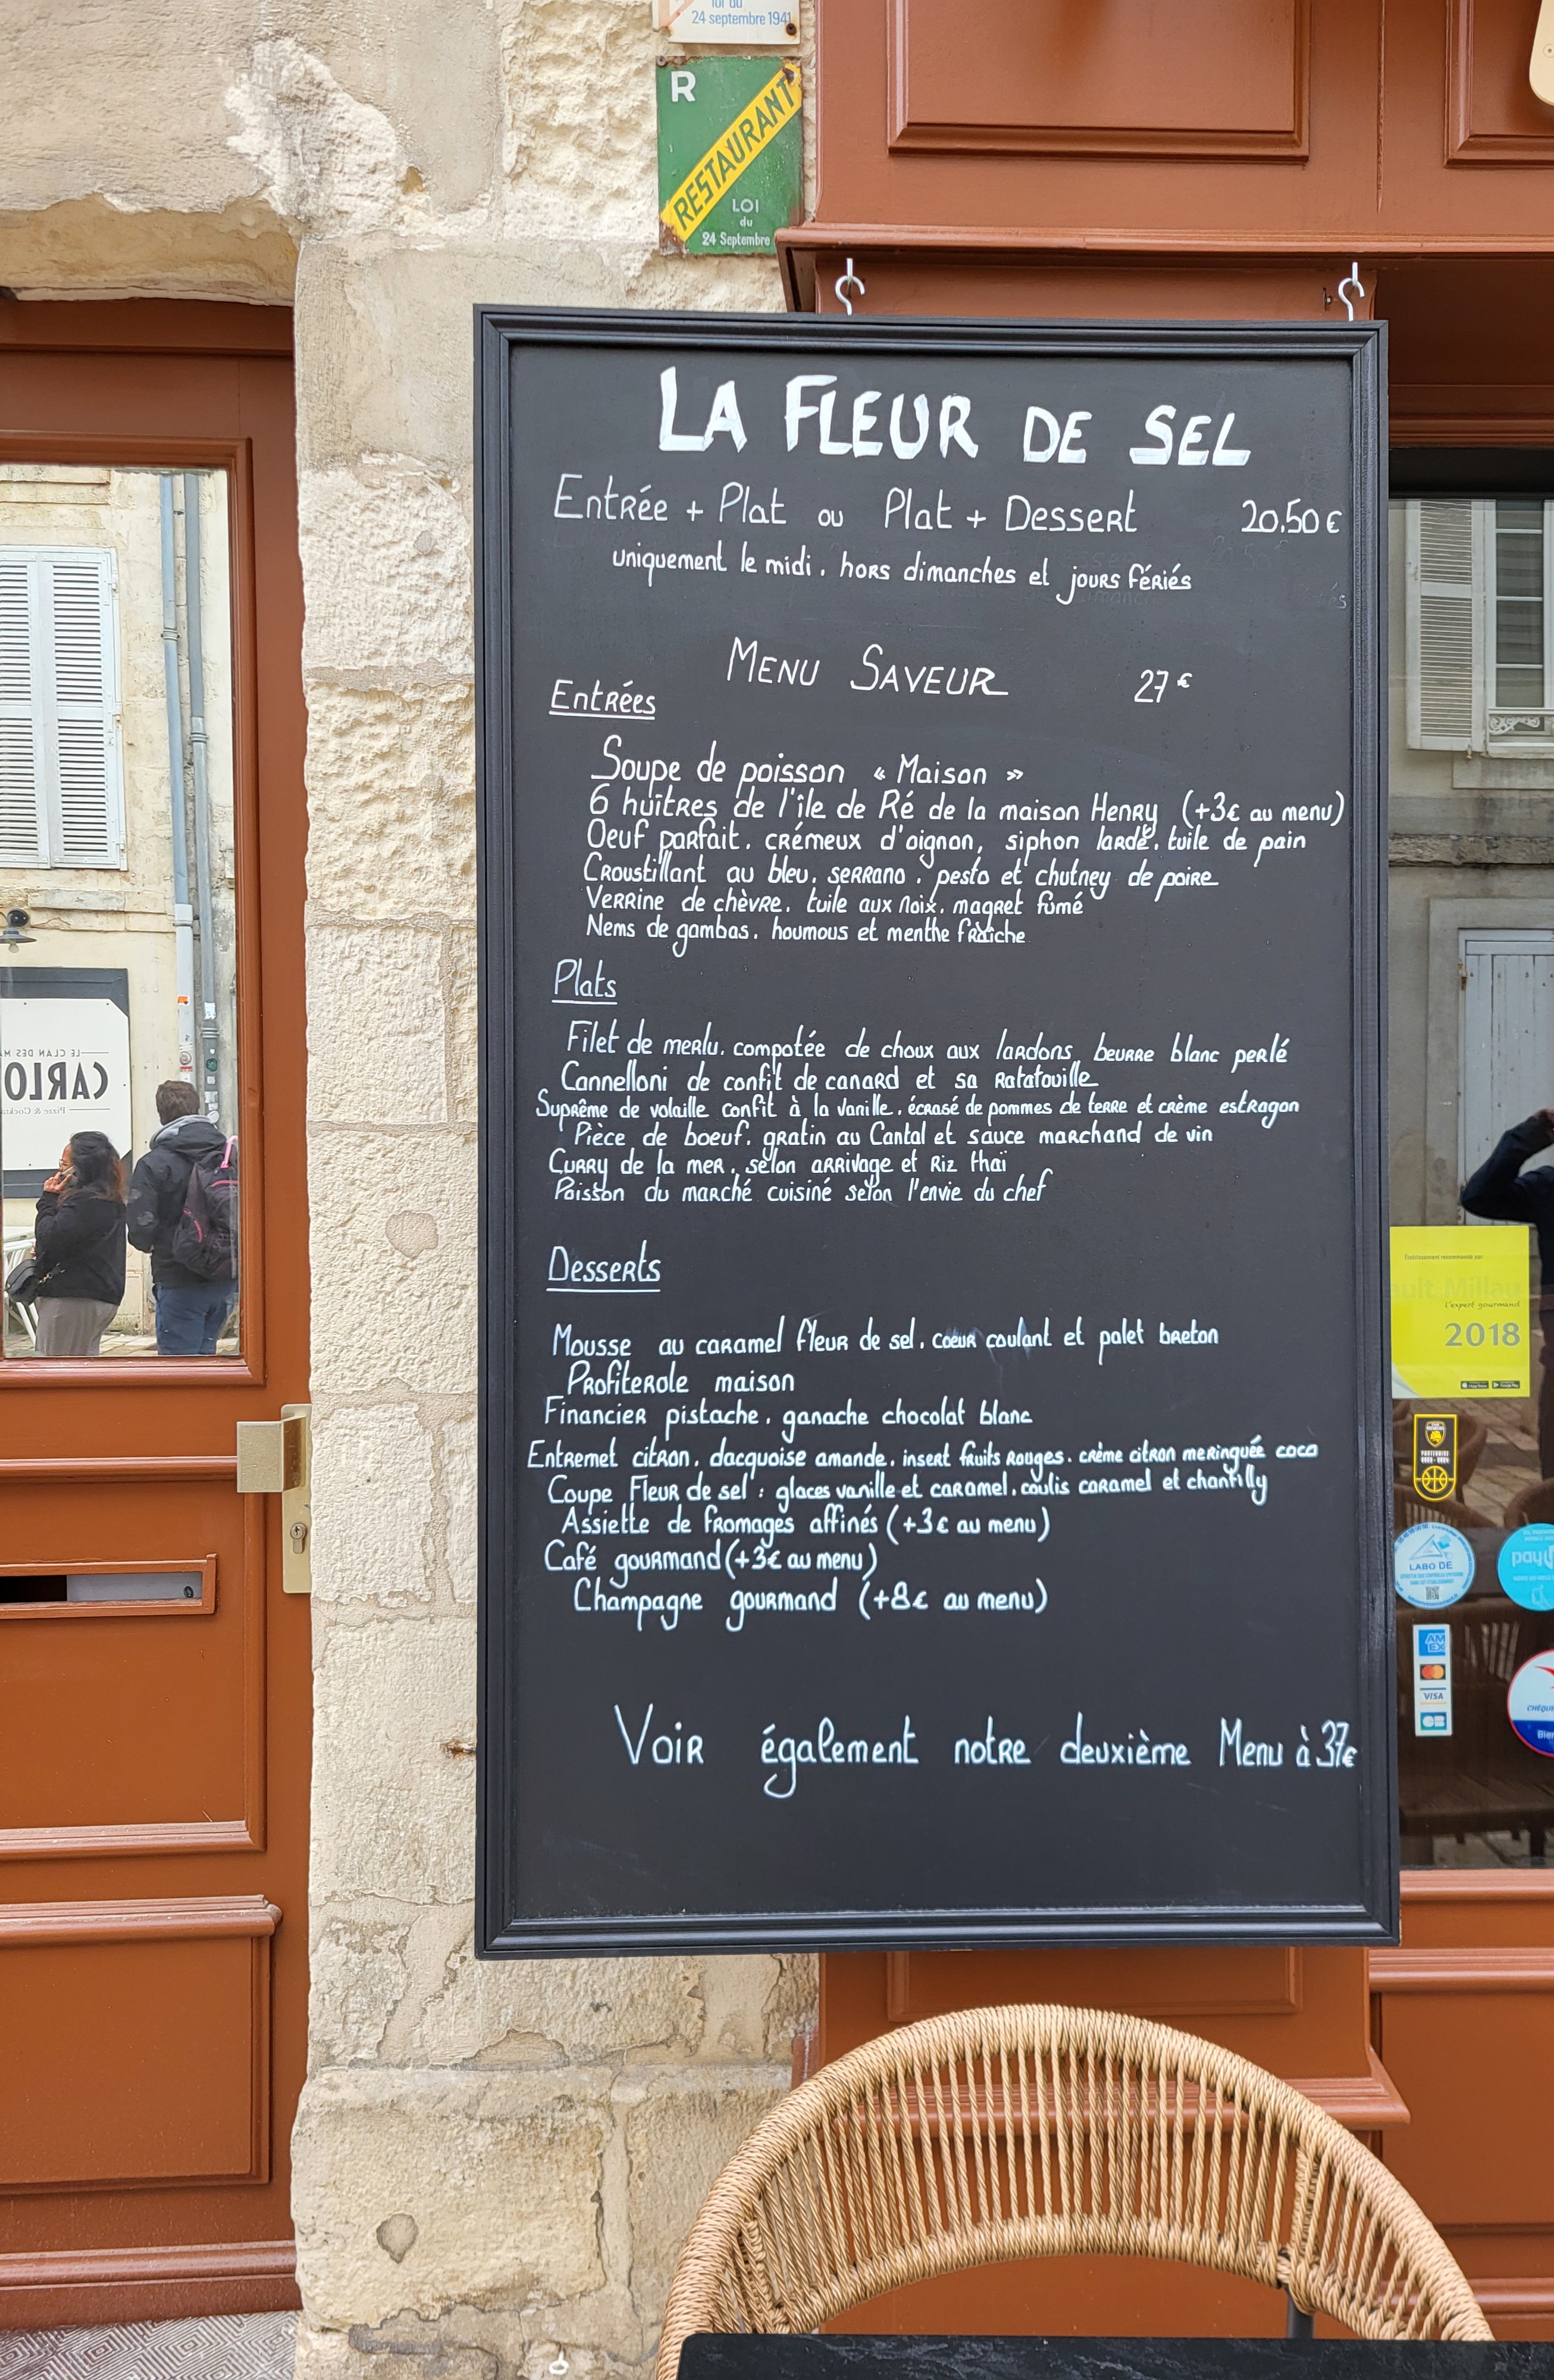 loi du
24 septembre 1941
R
RESTAURANT
LOI
du
24 Septembre
LA FLEUR DE SEL
Entrée + Plat ou Plat + Dessert 20.50 €
uniquement le midi. hors dimanches et jours fériés
MENU SAVEUR 27 €
Entrées
Soupe de poisson « Maison »
6 huîtres de l'île de Ré de la maison Henry (+3€ au menu)
Oeuf parfait. crémeux d'oignon, siphon lardé. tuile de pain
Croustillant au bleu. serrano. pesto et chutney de poire
Verrine de chèvre. tuile aux noix. magret fumé
Nems de gambas. houmous et menthe fraîche
Plats
Filet de merlu. compotée de choux aux lardons, beurre blanc perlé
Cannelloni de confit de canard et sa Ratatouille
Suprême de volaille confit à la vanille. écrasé de pommes de terre et crème estragon
Pièce de boeuf. gratin au Cantal et sauce marchand de vin
Curry de la mer. selon arrivage et Riz thaï
Poisson du marché cuisiné selon l'envie du chef
Desserts
Mousse au caramel fleur de sel. coeur coulant et palet breton
Profiterole maison
Financier pistache. ganache chocolat blanc
Entremet citron. dacquoise amande. insert fruits rouges. crème citron meringuée coco
Coupe Fleur de sel : glaces vanille et caramel. coulis caramel et chantilly
Assiette de fromages affinés (+3€ au menu)
Café gourmand (+3€ au menu)
Champagne gourmand (+8€ au menu)
Voir également notre deuxième Menu à 37€
LE CLAN DES
CARLO
Pizze &
Établissement recommandé par
ult Millau
l'expert gourmand
2018
LABO DE
pay
AM
EX
VISA
CB
CHÈQUE
Bien